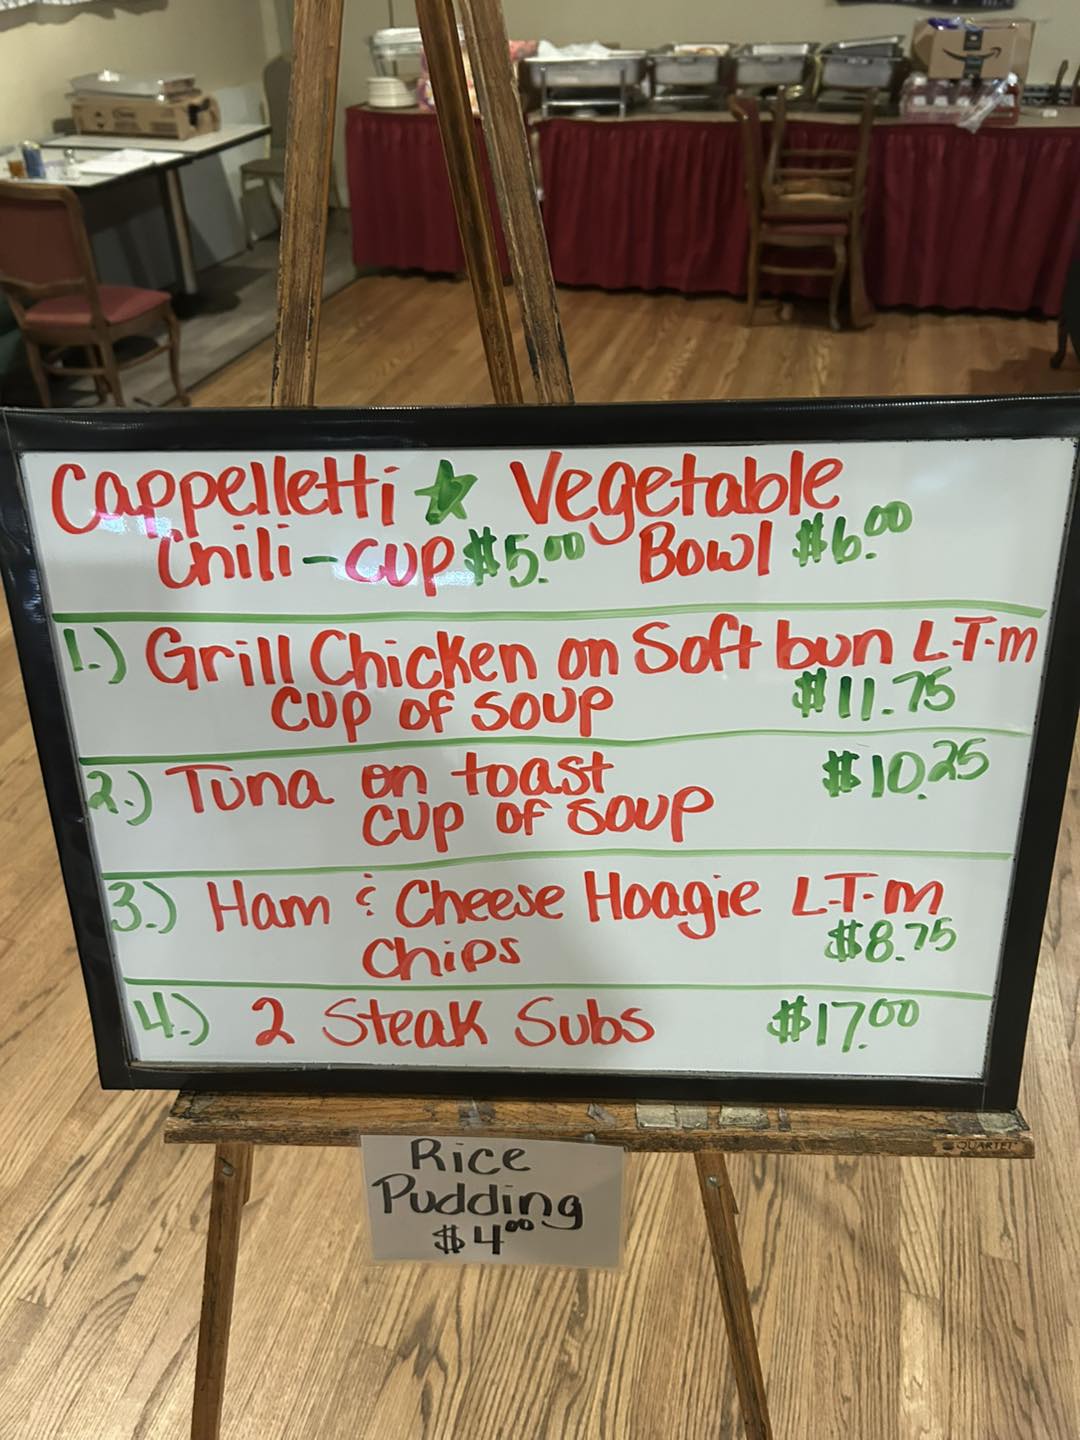 Cappelletti ★ Vegetable
Chili - cup $5.00 Bowl $6.00
1.) Grill Chicken on Soft bun L-T-m
cup of soup $11.75
2.) Tuna on toast $10.25
cup of soup
3.) Ham & Cheese Hoagie L-T-m
Chips $8.75
4.) 2 Steak Subs $17.00
QUARTET
Rice
Pudding
$4.00